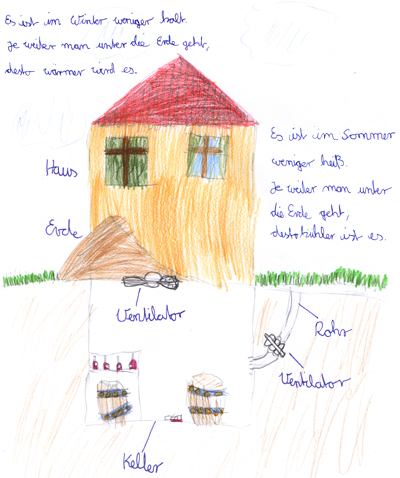 Es ist im Winter weniger kalt.
Je weiter man unter die Erde geht,
desto wärmer wird es.
Es ist im Sommer
weniger heiß.
Je weiter man unter
die Erde geht,
desto kühler ist es.
Haus
Erde
Ventilator
Rohr
Ventilator
Keller